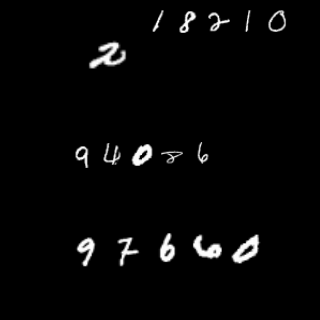 18210
2
94086
97660